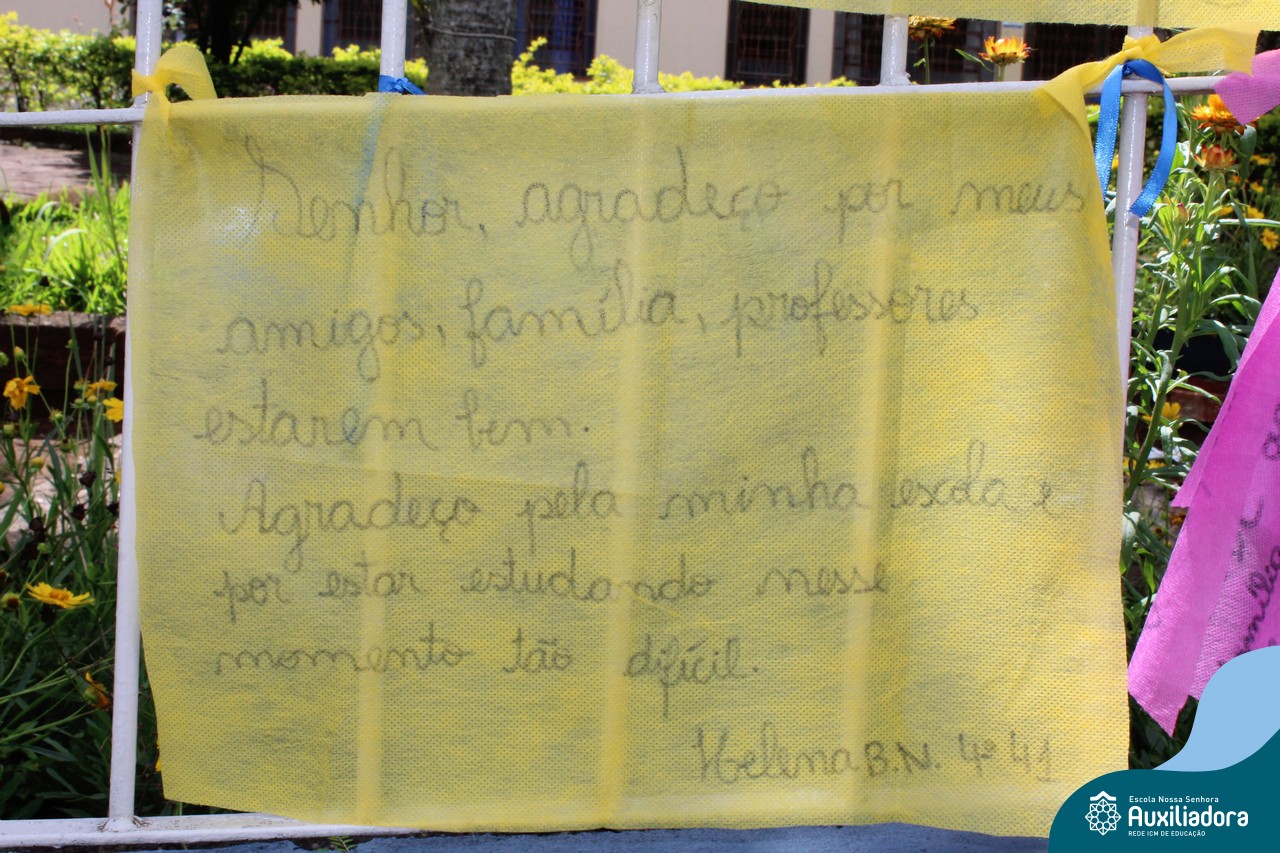 Senhor, agradeço por meus
amigos, família, professores
estarem bem.
Agradeço pela minha escola e
por estar estudando nesse
momento tão difícil.
Helena B.N. 4º 41
Escola Nossa Senhora
Auxiliadora
REDE ICM DE EDUCAÇÃO